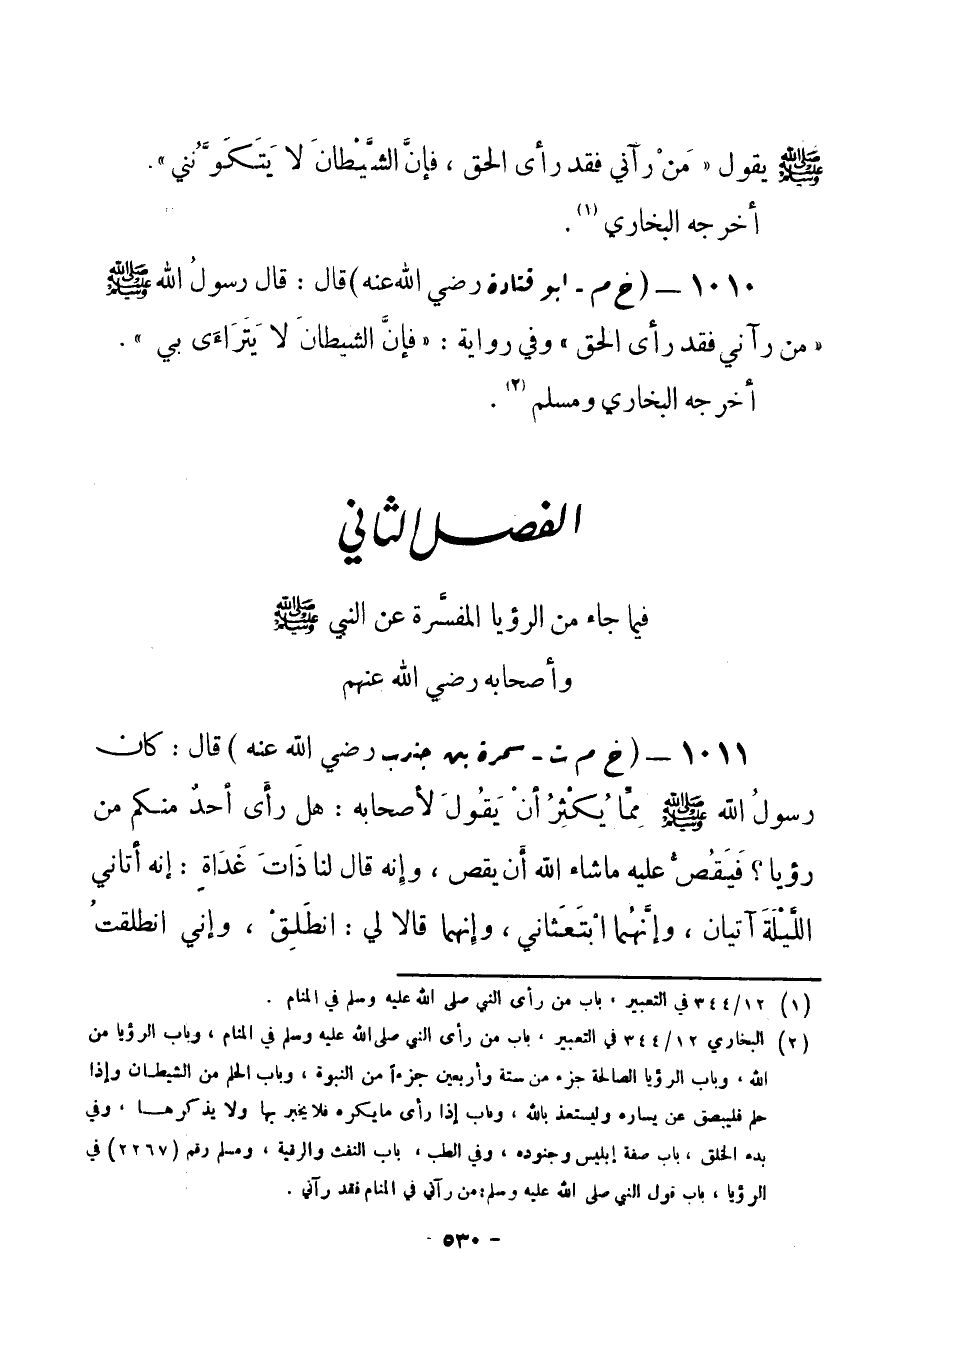 ﷺ يقول « مَنْ رآني فقد رأى الحق ، فإنَّ الشَّيْطانَ لا يَتَكَوَّنُني » .
أخرجه البخاري (١) .
١٠١٠ — (خ م - ابو قتادة رضي الله عنه) قال : قال رسولُ الله ﷺ
« من رآني فقد رأى الحق » وفي رواية : « فإنَّ الشيطانَ لا يَتَرَاءَى بي » .
أخرجه البخاري ومسلم (٢) .
الفصل الثاني
فيما جاء من الرؤيا المفسَّرة عن النبي ﷺ
وأصحابه رضي الله عنهم
١٠١١ — (خ م ت - سمرة بن جندب رضي الله عنه ) قال : كان
رسولُ الله ﷺ مِمَّا يُكْثِرُ أنْ يَقُولَ لأصحابه : هل رأى أحدٌ منكم من
رؤيا ؟ فَيَقُصُّ عليه ماشاء الله أن يقص ، وإنه قال لنا ذَاتَ غَدَاةٍ : إنه أتاني
اللَّيْلَةَ آتيان ، وإنَّهُما ابْتَعَثاني ، وإنهما قالا لي : انطَلِقْ ، وإني انطلقتُ
(١) ٣٤٤/١٢ في التعبير ، باب من رأى النبي صلى الله عليه وسلم في المنام .
(٢) البخاري ٣٤٤/١٢ في التعبير ، باب من رأى النبي صلى الله عليه وسلم في المنام ، وباب الرؤيا من
الله ، وباب الرؤيا الصالحة جزء من ستة وأربعين جزءاً من النبوة ، وباب الحلم من الشيطان وإذا
حلم فليبصق عن يساره وليستعذ بالله ، وباب إذا رأى مايكره فلا يخبر بها ولا يذكرها ، وفي
بدء الخلق ، باب صفة إبليس وجنوده ، وفي الطب ، باب النفث والرقية ، ومسلم رقم (٢٢٦٧) في
الرؤيا ، باب قول النبي صلى الله عليه وسلم : من رآني في المنام فقد رآني .
- ٥٣٠ -